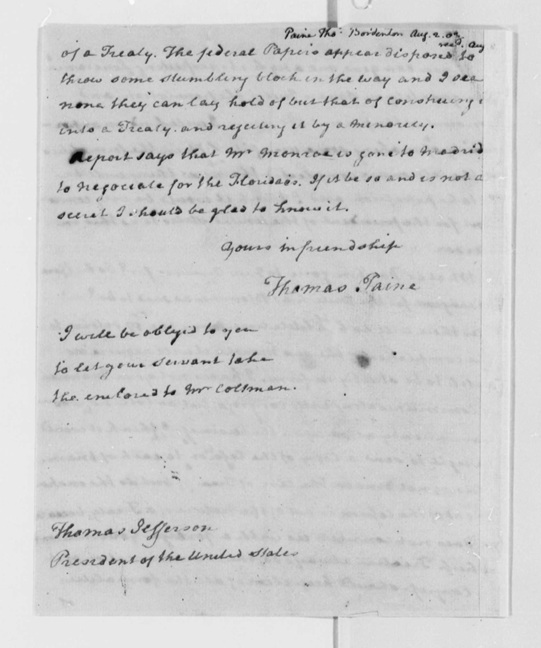 Paine Thos. Bordenton Aug. 2. 03.
recd. Aug
of a Treaty. The federal Papers appear disposed to
throw some stumbling block in the way and I see
none they can lay hold of but that of construing i
into a Treaty. and rejecting it by a minority.
Report says that Mr. Monroe is gone to Madrid
to negociate for the Florida's. If it be so and is not a
secret I should be glad to know it.
Yours in friendship
Thomas Paine
I will be oblig'd to you
to let your servant take
the enclosed to Mr. Coltman.
Thomas Jefferson
President of the United States